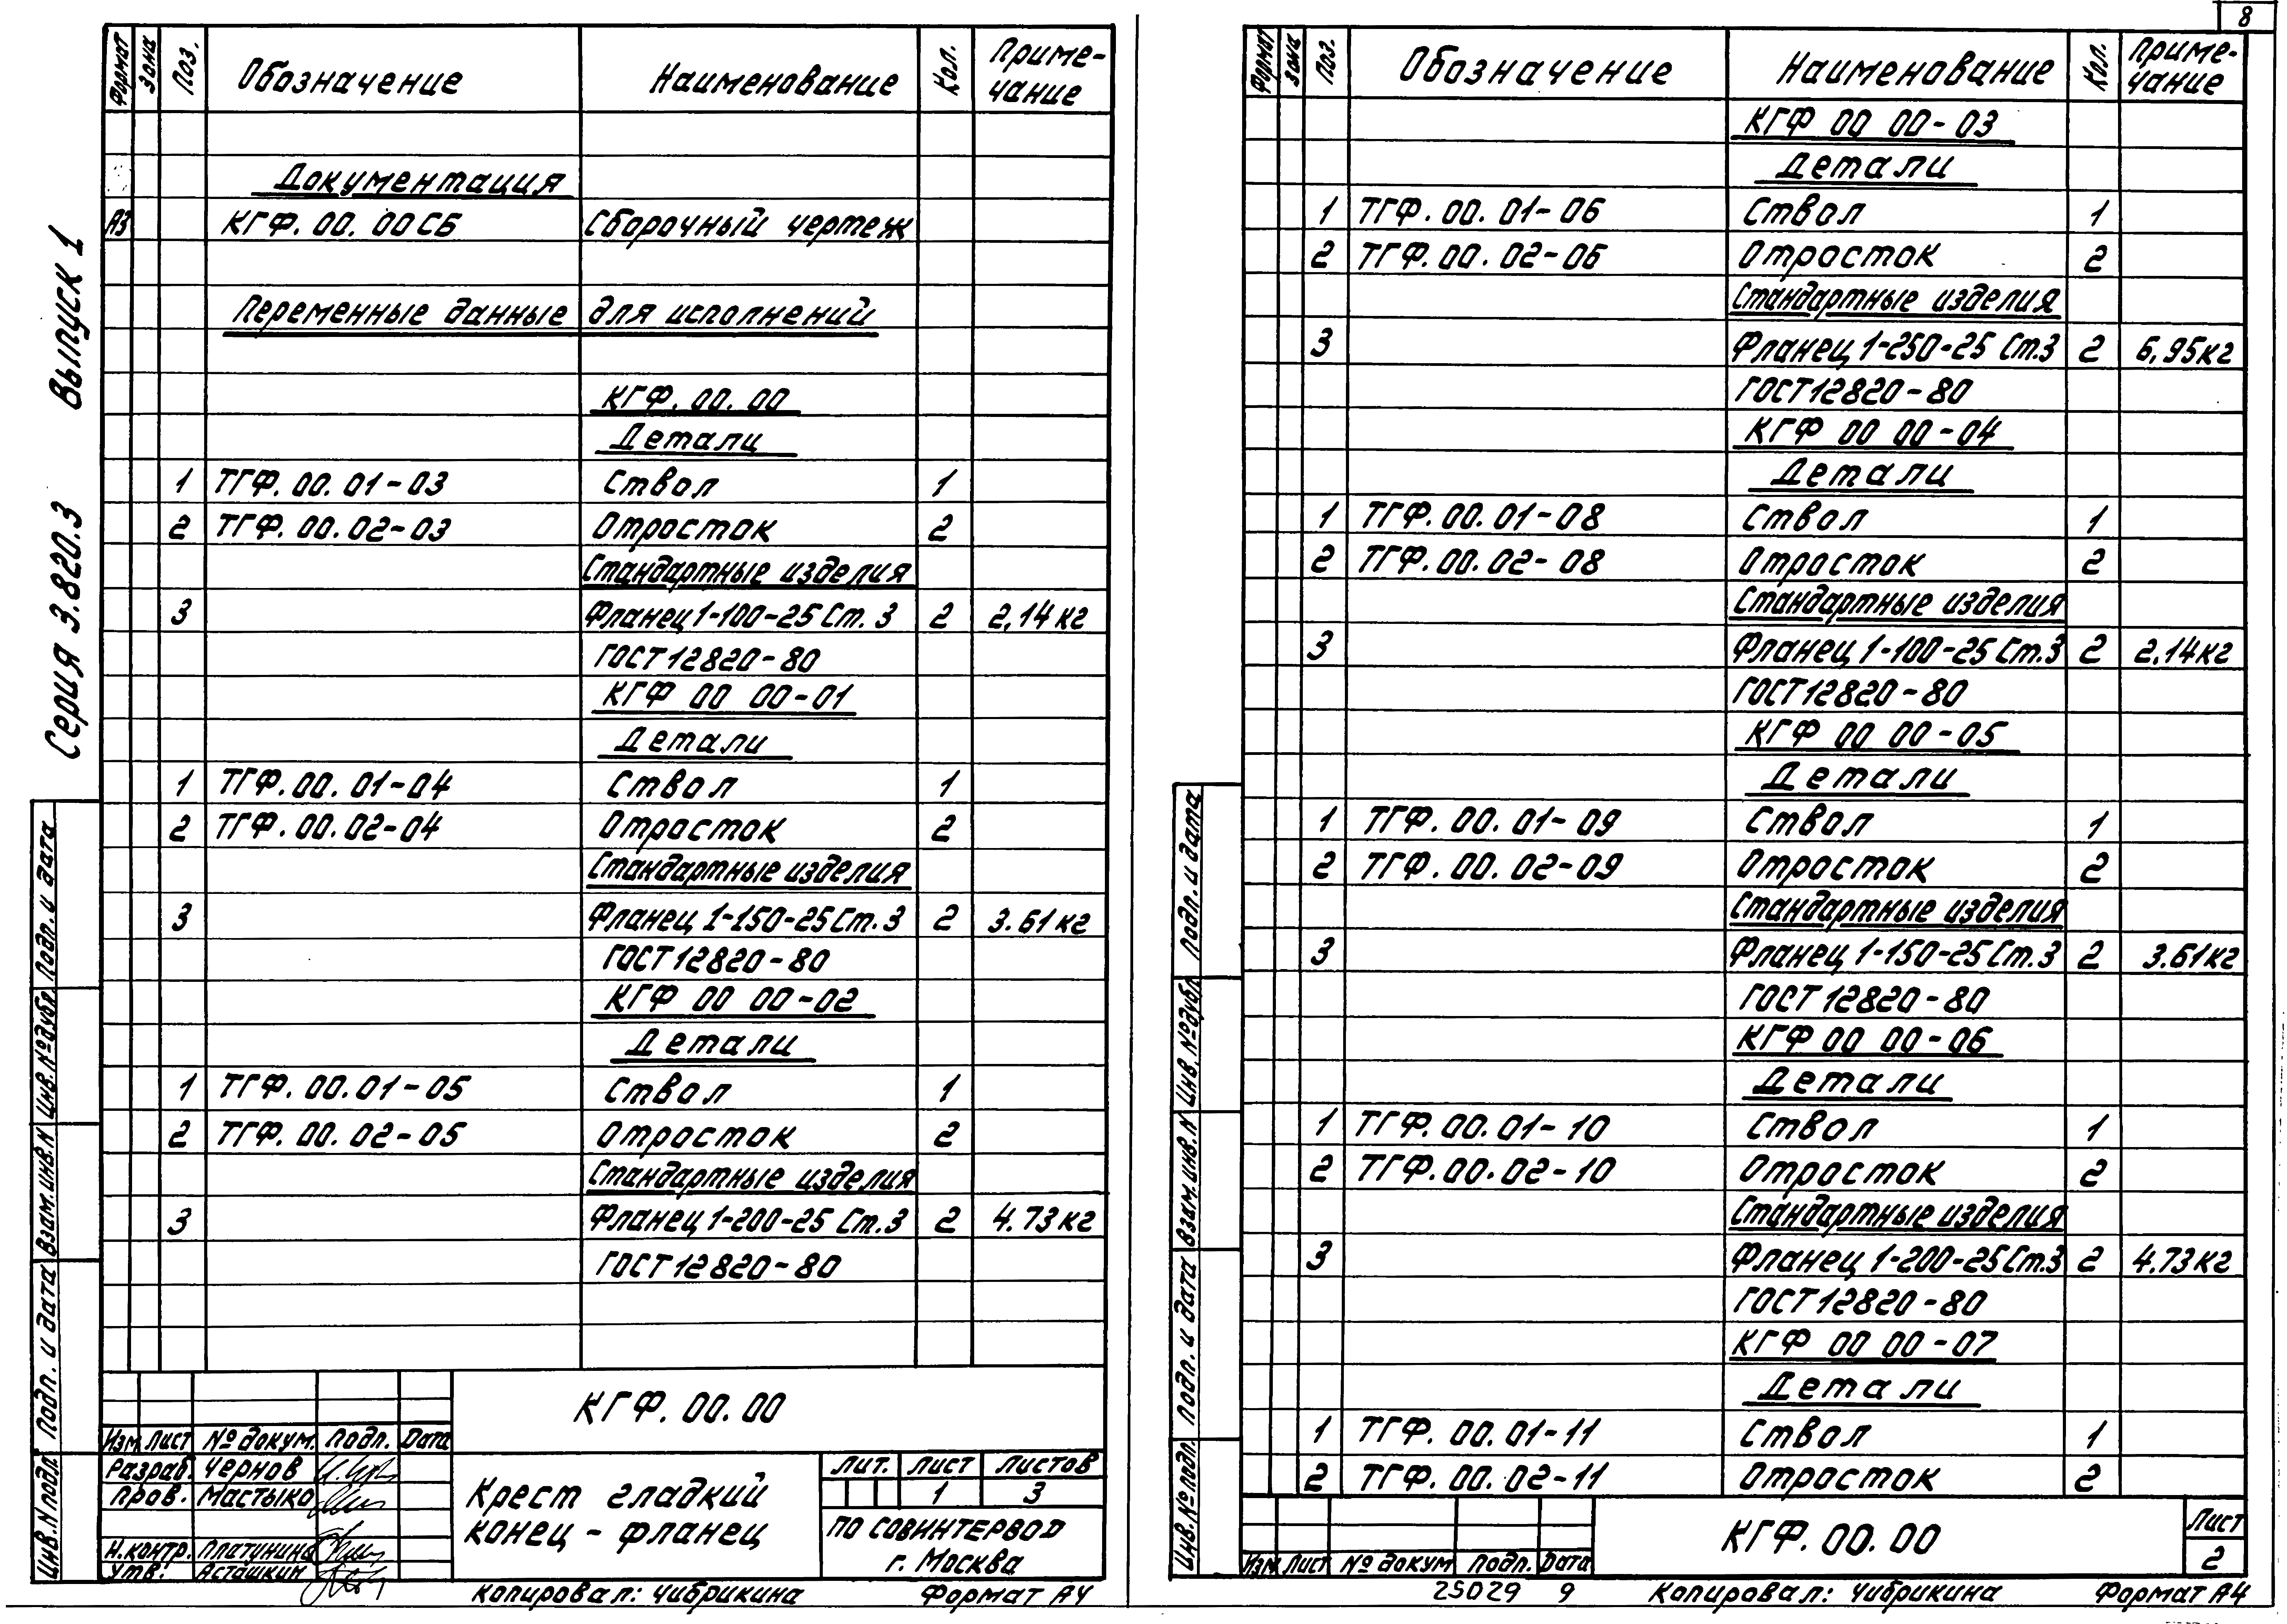 Серия 3.820.3 Выпуск 1
Формат Зона Поз. Обозначение Наименование Кол. Приме-
чание
Документация
А3 КГФ. 00. 00 СБ Сборочный чертеж
Переменные данные для исполнений
КГФ. 00. 00
Детали
1 ТГФ. 00. 01-03 Ствол 1
2 ТГФ. 00. 02-03 Отросток 2
Стандартные изделия
3 Фланец 1-100-25 Ст. 3 2 2,14 кг
ГОСТ 12820-80
КГФ 00 00-01
Детали
1 ТГФ. 00. 01-04 Ствол 1
2 ТГФ. 00. 02-04 Отросток 2
Стандартные изделия
3 Фланец 1-150-25 Ст. 3 2 3.61 кг
ГОСТ 12820-80
КГФ 00 00-02
Детали
1 ТГФ. 00. 01-05 Ствол 1
2 ТГФ. 00. 02-05 Отросток 2
Стандартные изделия
3 Фланец 1-200-25 Ст. 3 2 4.73 кг
ГОСТ 12820-80
Инв. N подл. Подп. и дата Взам. инв. N Инв. № дубл. Подп. и дата
КГФ. 00. 00
Изм Лист № докум. Подп. Дата
Разраб. Чернов
Пров. Мастыко
Н.контр. Платунина
Утв. Асташкин
Крест гладкий
конец - фланец
Лит. Лист Листов
1 3
ПО СОВИНТЕРВОД
г. Москва
Копировал: Чибрикина Формат А4
8
Формат Зона Поз. Обозначение Наименование Кол. Приме-
чание
КГФ 00 00-03
Детали
1 ТГФ. 00. 01-06 Ствол 1
2 ТГФ. 00. 02-06 Отросток 2
Стандартные изделия
3 Фланец 1-250-25 Ст.3 2 6,95 кг
ГОСТ 12820-80
КГФ 00 00-04
Детали
1 ТГФ. 00. 01-08 Ствол 1
2 ТГФ. 00. 02-08 Отросток 2
Стандартные изделия
3 Фланец 1-100-25 Ст.3 2 2,14 кг
ГОСТ 12820-80
КГФ 00 00-05
Детали
1 ТГФ. 00. 01-09 Ствол 1
2 ТГФ. 00. 02-09 Отросток 2
Стандартные изделия
3 Фланец 1-150-25 Ст.3 2 3.61 кг
ГОСТ 12820-80
КГФ 00 00-06
Детали
1 ТГФ. 00. 01-10 Ствол 1
2 ТГФ. 00. 02-10 Отросток 2
Стандартные изделия
3 Фланец 1-200-25 Ст.3 2 4.73 кг
ГОСТ 12820-80
КГФ 00 00-07
Детали
1 ТГФ. 00. 01-11 Ствол 1
2 ТГФ. 00. 02-11 Отросток 2
Инв. № подл. Подп. и дата Взам. инв. N Инв. № дубл Подп. и дата
КГФ. 00. 00
Лист
2
Изм Лист № докум Подп. Дата
25029 9 Копировал: Чибрикина Формат А4